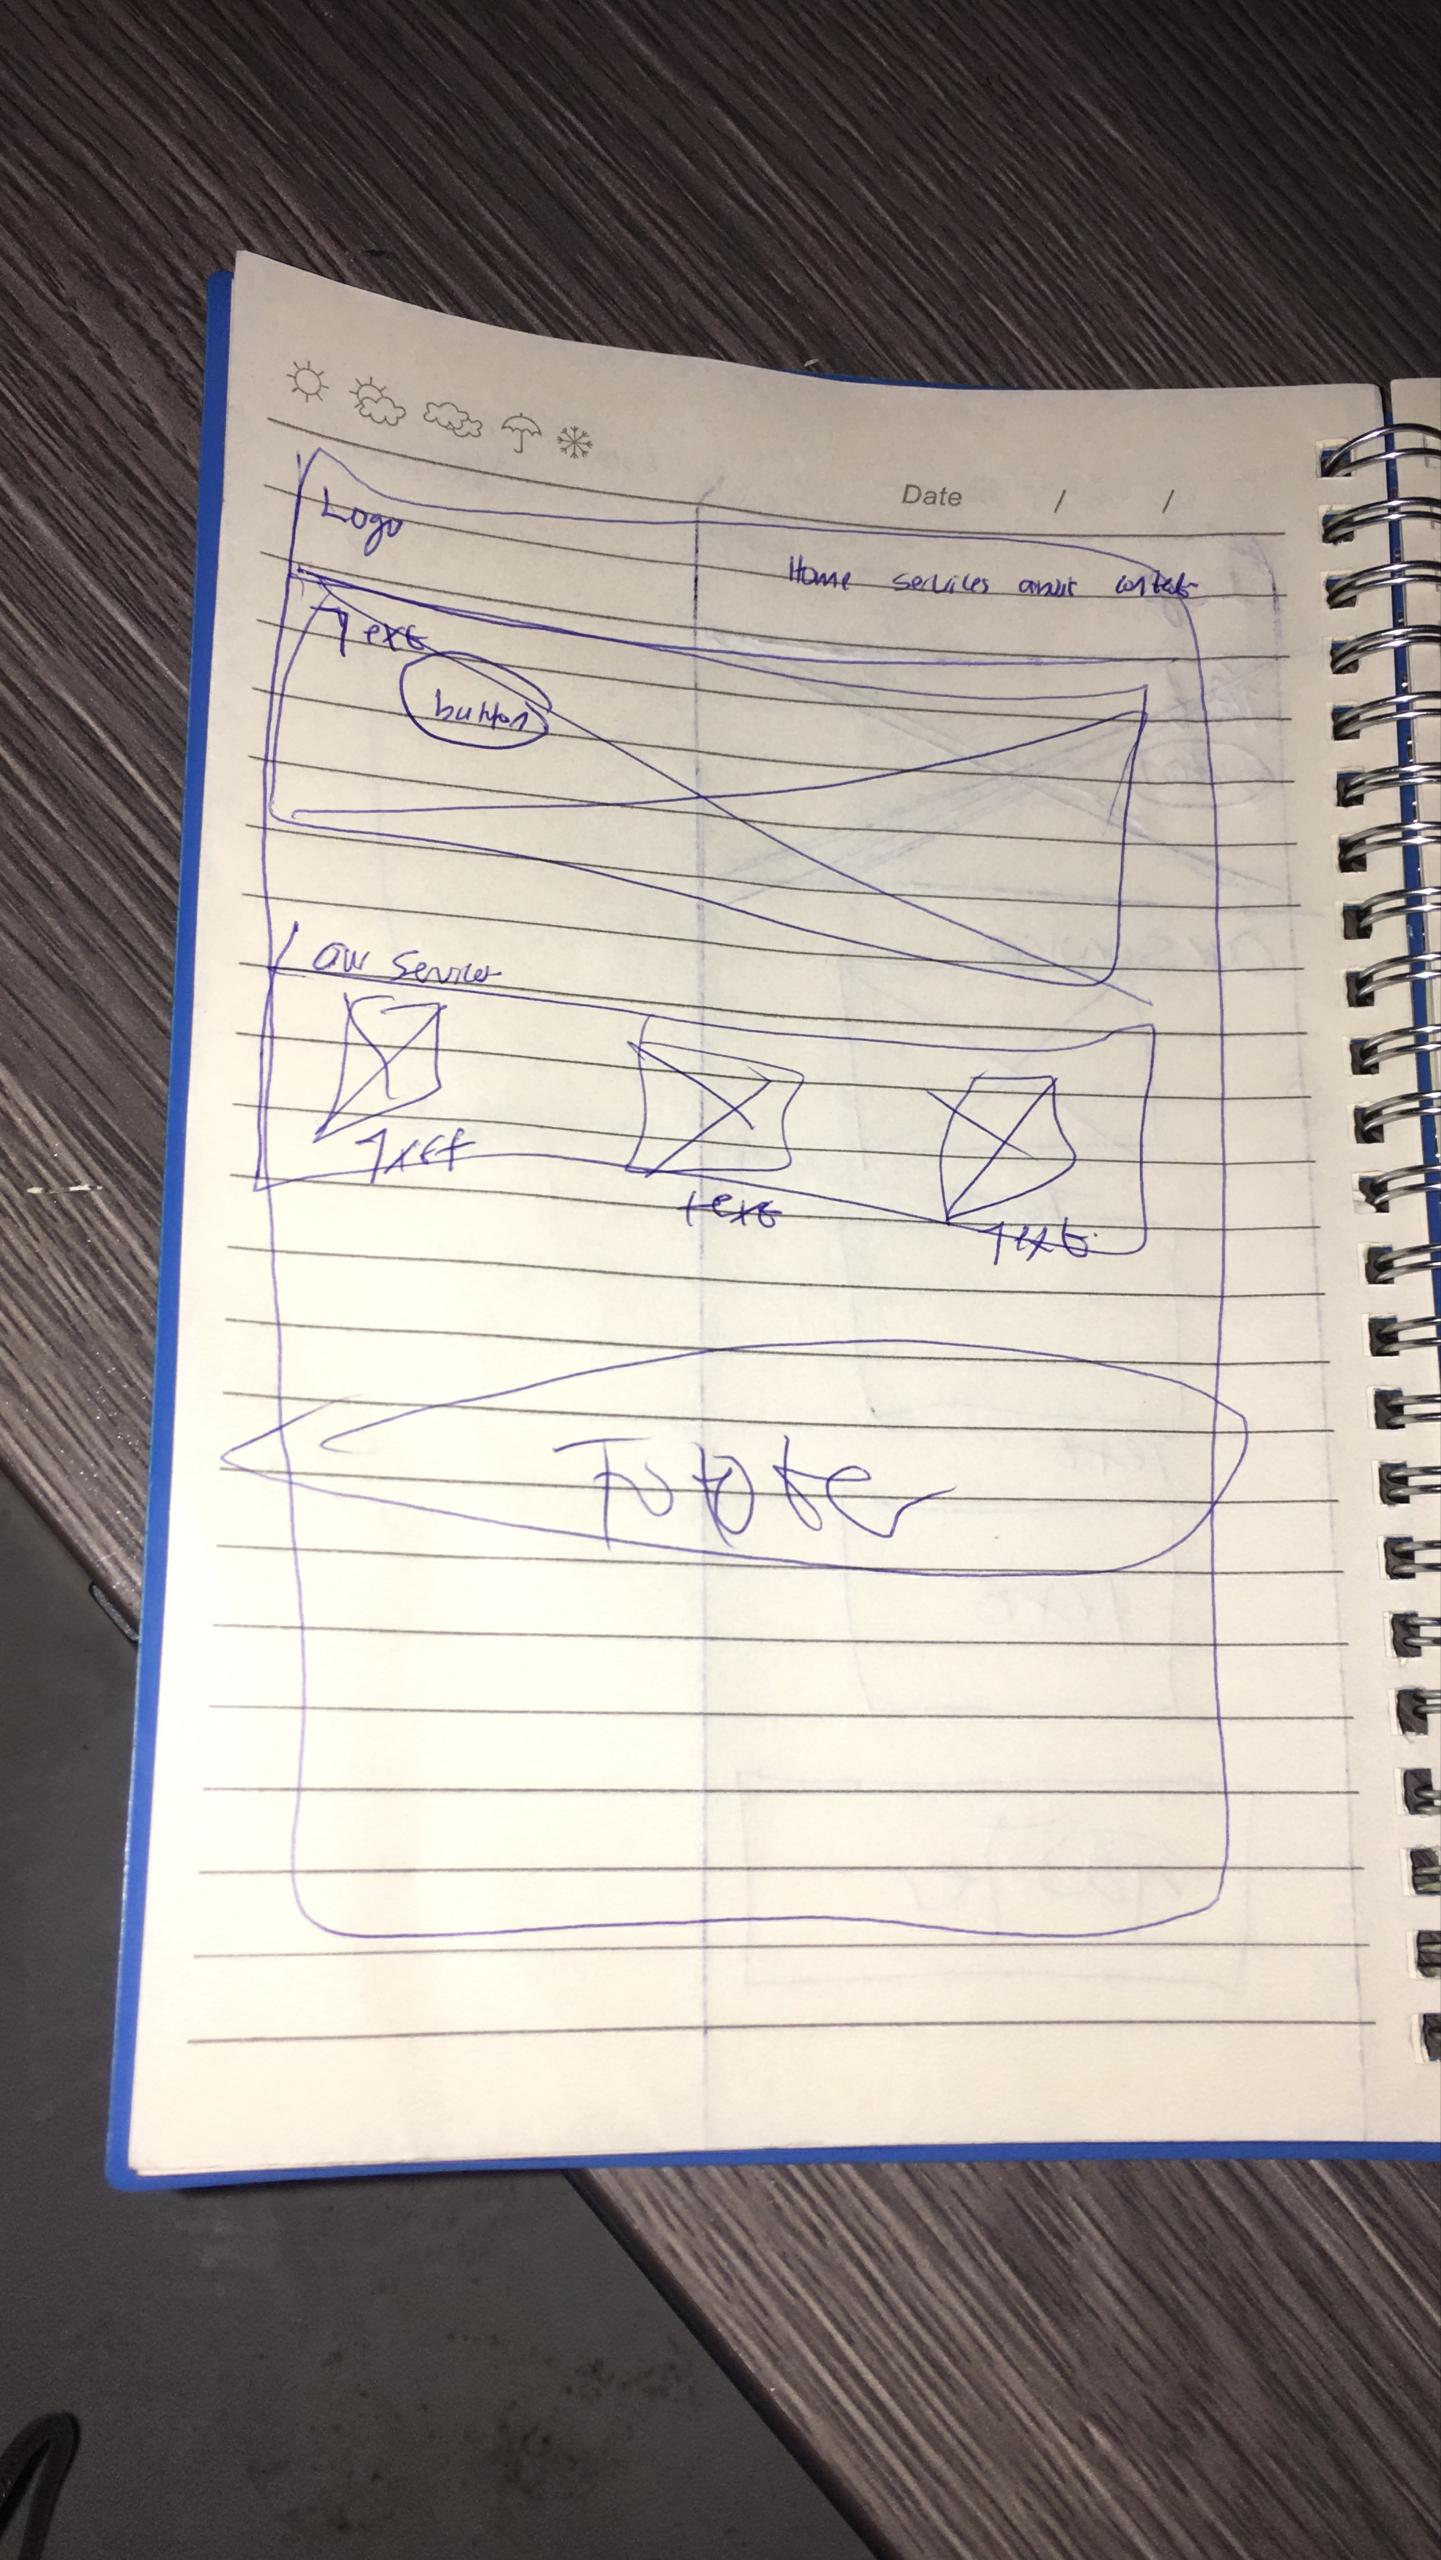 Date / /
Logo
Home services about contact
Text
button
our Services
Text
text
Text
Footer